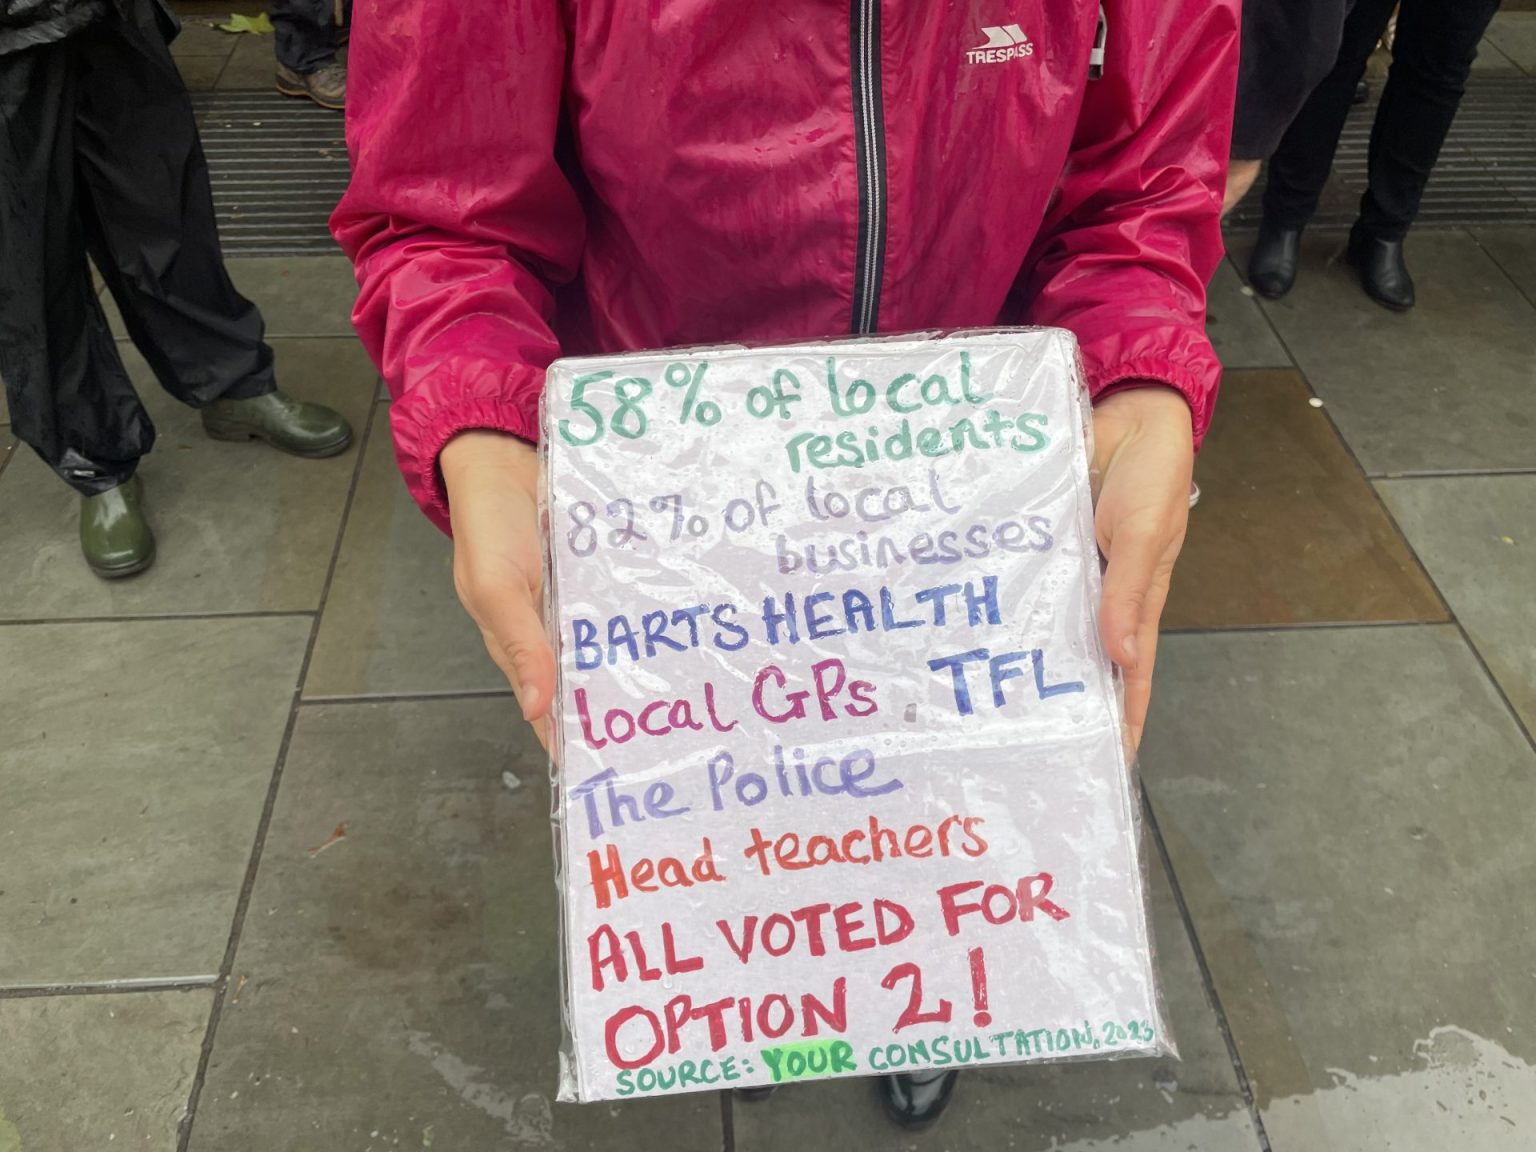 TRESPASS
58% of local
residents
82% of local
businesses
BARTS HEALTH
local GPs. TFL
The Police
Head teachers
ALL VOTED FOR
OPTION 2!
SOURCE: YOUR CONSULTATION, 2023